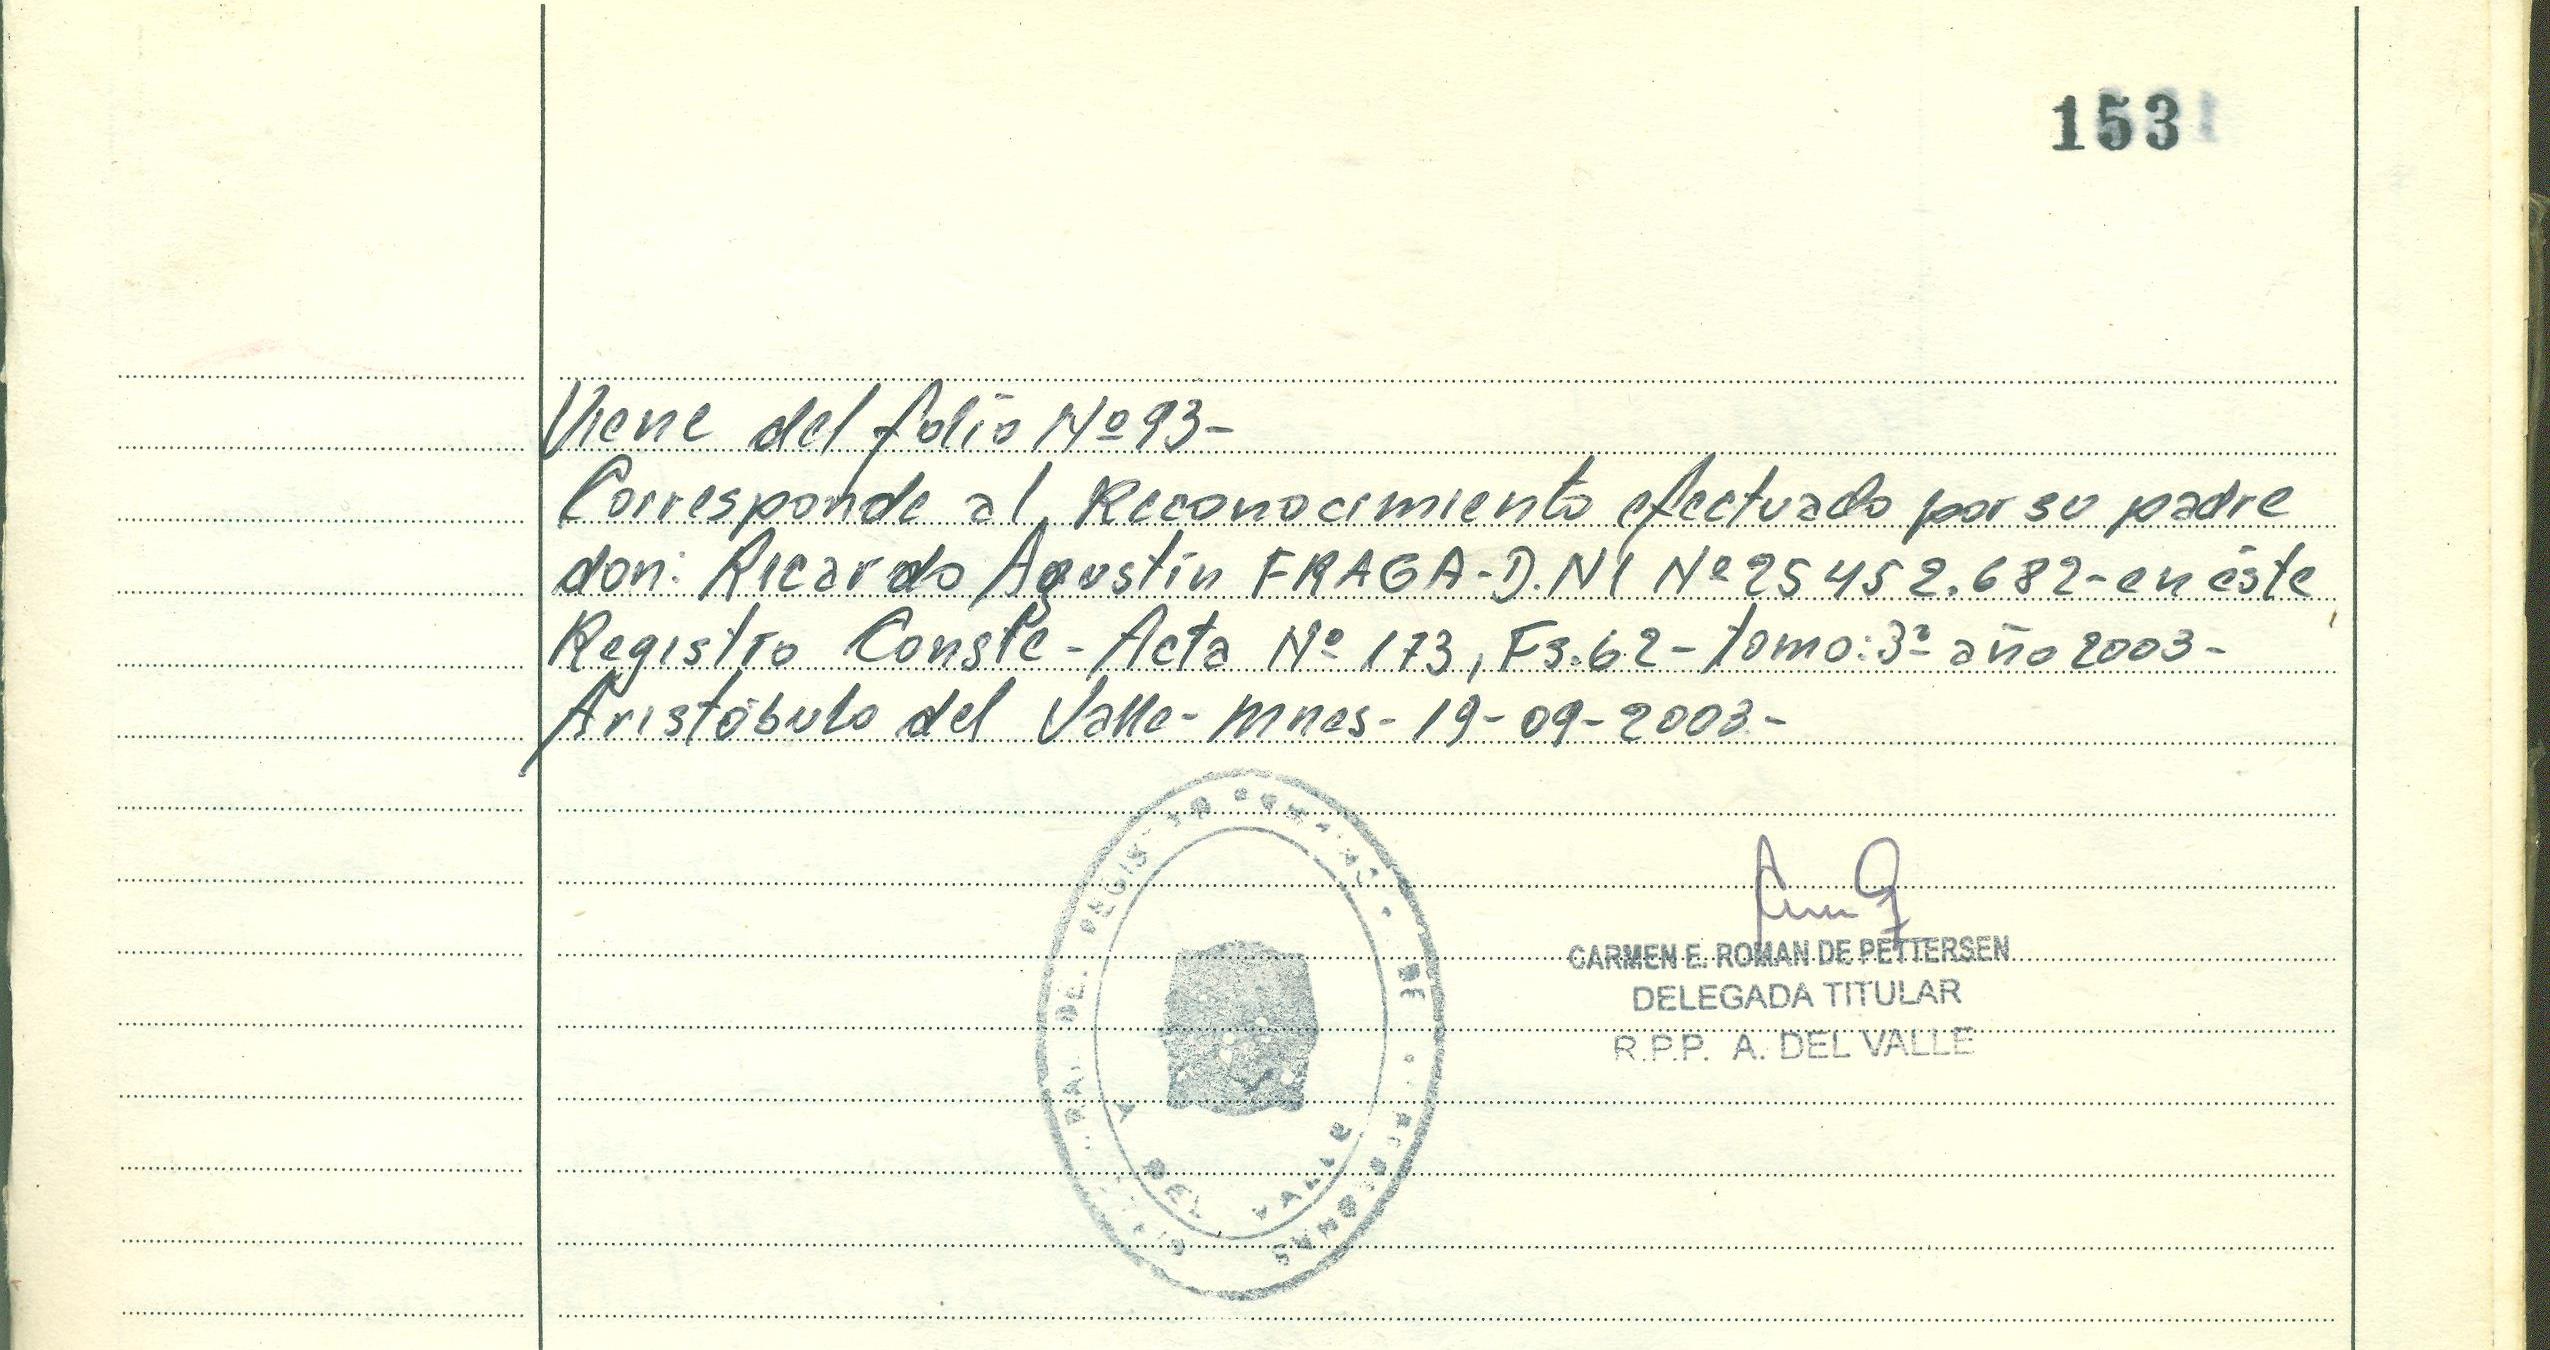 153
Viene del folio Nº 93-
Corresponde al Reconocimiento efectuado por su padre
don: Ricardo Agustín FRAGA-D.NI Nº 25452.682-en éste
Registro Conste-Acta Nº 173, Fs.62-tomo:3º año 2003-
Aristóbulo del Valle-Mnes-19-09-2003-
CARMEN E. ROMAN DE PETTERSEN
DELEGADA TITULAR
R.P.P. A. DEL VALLE
DE REGISTRO DE PERSONAS
A DEL VALLE